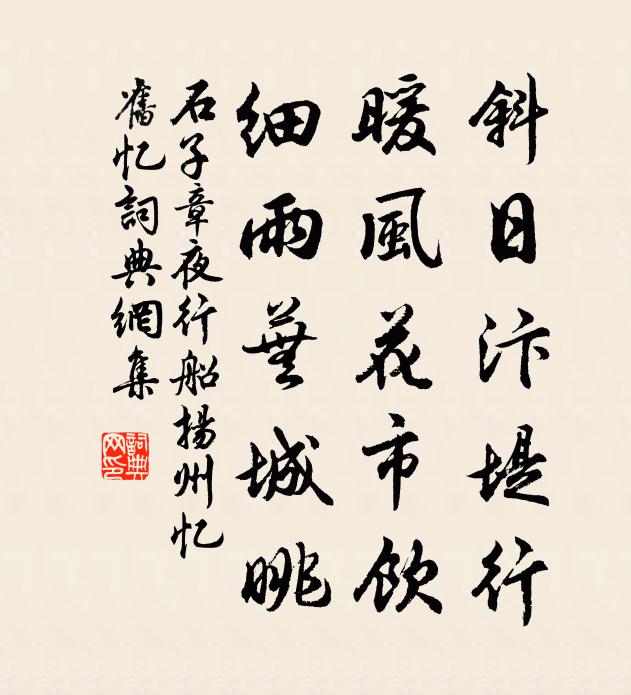 斜日汴堤行
暖風花市飲
細雨蕪城眺
石子章夜行船揚州忆
舊忆詞典網集
詞典網印